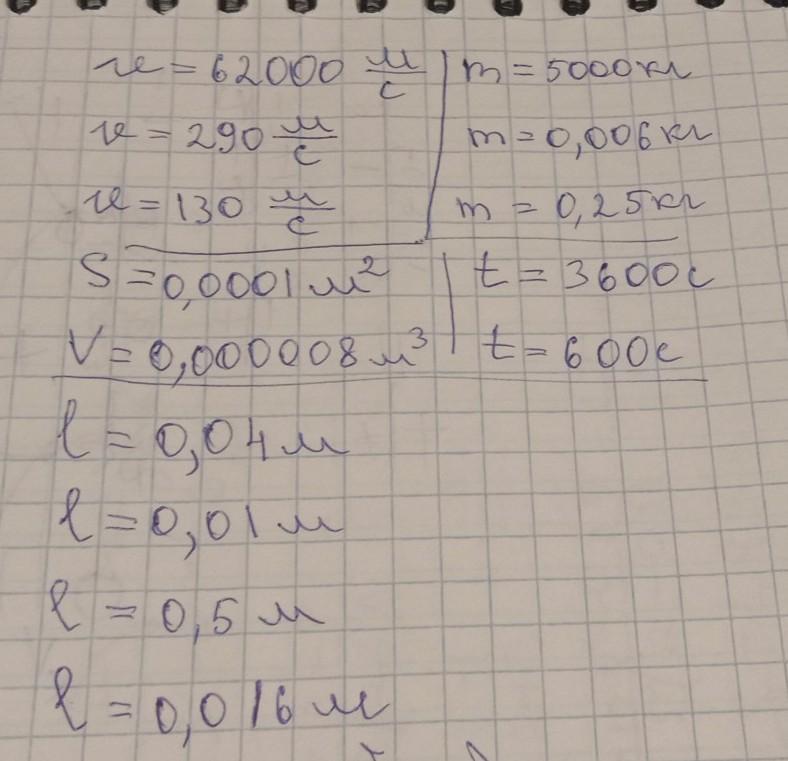 v = 62000 м/с | m = 5000 кг
v = 290 м/с | m = 0,006 кг
v = 130 м/с | m = 0,25 кг
S = 0,0001 м² | t = 3600 с
V = 0,000008 м³ | t = 600 с
l = 0,04 м
l = 0,01 м
l = 0,5 м
l = 0,016 м